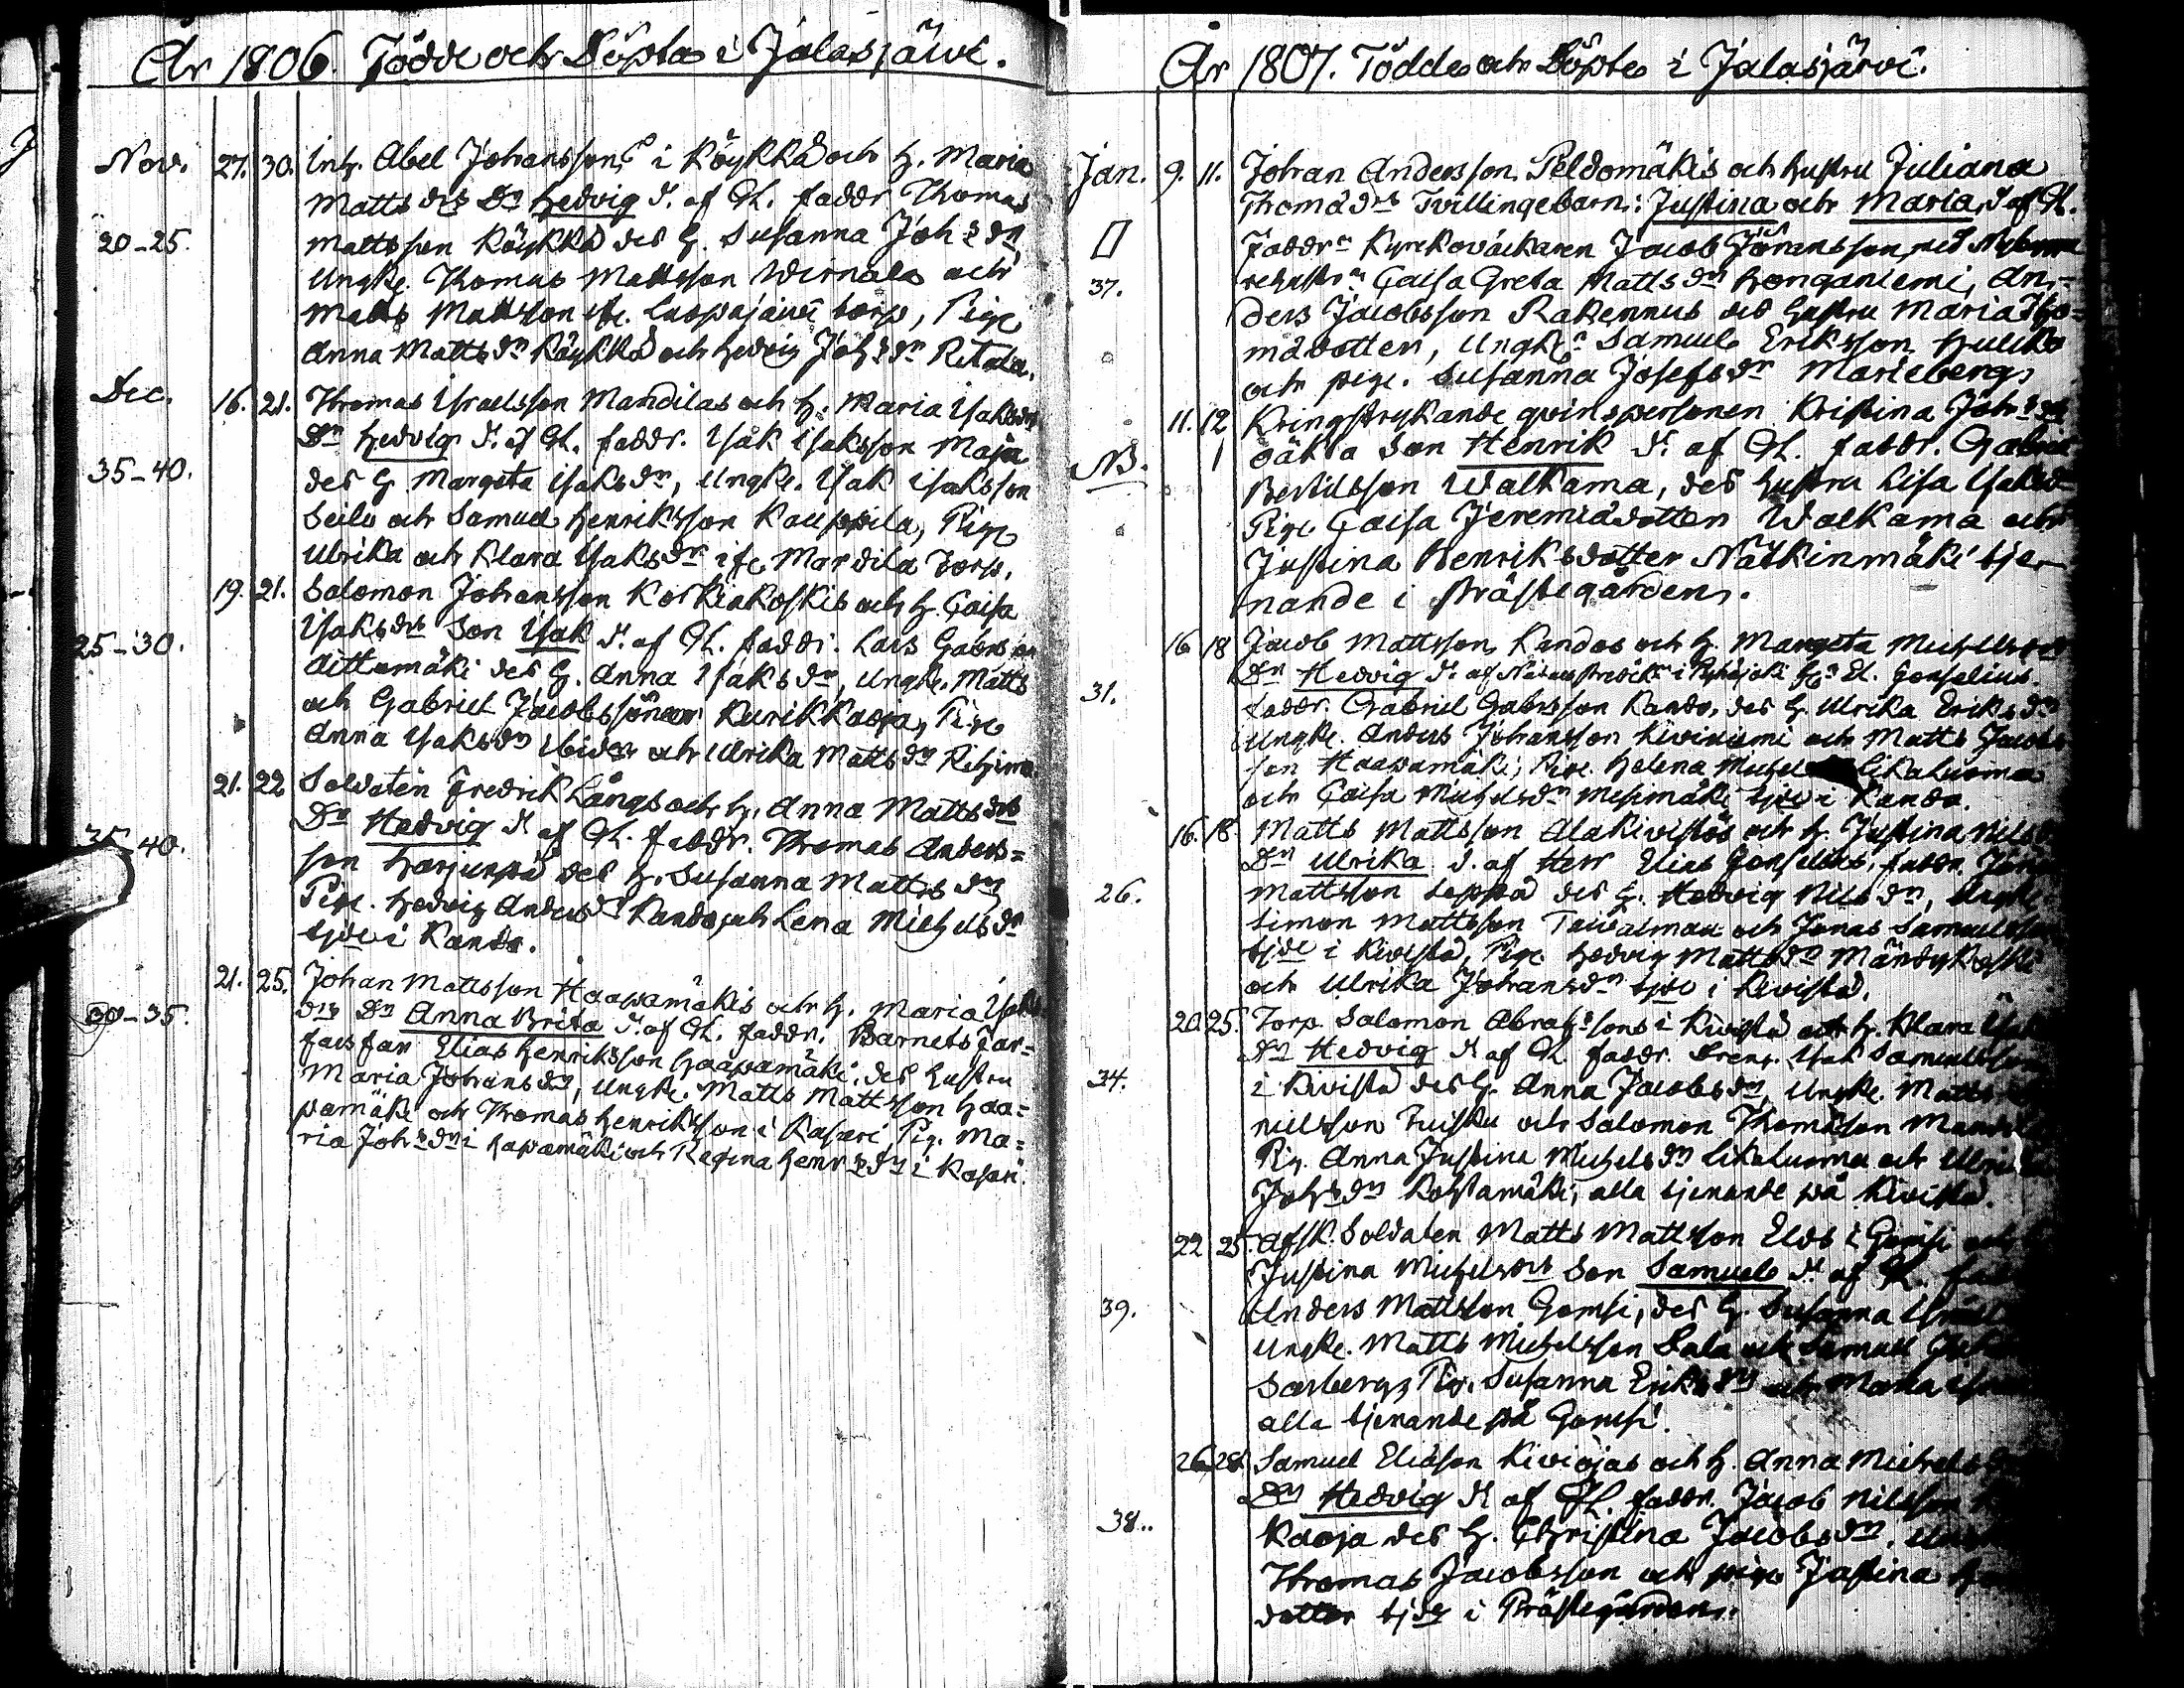 År 1806. Födde och Döpta i Jalasjäwi.
Nov. 27. 30. Inh. Abel Johanssons i Röykkä och H. Maria
Matts drs Dr Hedvig d. af Gl. faddr Thomas
20-25. Mattsson Röykkä des H. Susanna Joh:s dr
Ungk. Thomas Mattsson Wirnala och
Matts Mattsson ifr. Luopajärwi torp, Pig.
Anna Matts dr Röykkä och Hedvig Joh:s dr Ritala.
Dec. 16. 21. Thomas Israelsson Mandilas och H. Maria Isaksdrs
Dr Hedvig d. af Gl. faddr. Isak Isaksson Maja
35-40. des H. Margeta Isaks dr, Ungk. Isak Isaksson
Seilo och Samuel Henriksson Kauppila, Pigr
Ulrika och Klara Isaks dr ifr Mandila Torp.
19. 21. Salomon Johansson Koskiakoskis och H. Caisa
Isaks drs Son Isak d. af Gl. faddr. Lars Gabrs son
25-30. Aittamäki des H. Anna Isaks dr, Ungk. Matts
och Gabriel Jacobssöner Kurikkaoja, Pigr
Anna Isaks dr ibid. och Ulrika Matts dr
21. 22 Soldaten Fredrik Långs och H. Anna Matts drs
Dr Hedvig d. af Gl. faddr. Thomas Anders=
35-40. son Harjunpä des H. Susanna Matts dr
Pigr. Hedvig Anders dr Kando och Lena Michels dr
tjde i Kando.
21. 25. Johan Mattsson Haapamäkis och H. Maria Isaks
drs Dr Anna Brita d. af Gl. faddr. Barnets Far=
30-35. fars far Elias Henriksson Haapamäki, des Hustru
Maria Johans dr, Ungk. Matts Mattsson Haa=
pamäki och Thomas Henriksson i Kasari, Pig. Ma=
ria Joh:s dr i Hapamäki och Regina Henr:s dr i Kasari.
År 1807. Födde och Döpte i Jalasjärvi.
Jan. 9. 11. Johan Andersson Peldomäkis och hustru Juliana
Thomädrs Tvillingebarn: Justina och Maria, d. af Gl.
Faddr: Kyrkoväktaren Jacob Göransson, med
37. Caisa Greta Matts dr Honganiemi, An=
ders Jacobsson Rakennus des hustru Maria Tho=
mädotter, Ungk:n Samuel Eriksson
och pig. Susanna Josefs dr Marieberg.
11. 12 Kringstrykande qvinspersonen Kristina Joh:s
NB. oäkta Son Henrik d. af Gl. faddr. Gabriel
Bertilsson Walkama, des hustru Lisa Isaks
Pig. Caisa Jeremiädotter Walkama och
Justina Henriksdotter Nätkinmäki tje-
nande i Prästegården.
16 18 Jacob Mattsson Kandos och H. Margeta Michels
Dr Hedvig d. af i El. Gonselius.
31. faddr. Gabriel Gabrsson Kando, des H. Ulrika Eriks dr
Ungk. Anders Johansson Kiviniemi och Matts Jacobs
son Haapamäki, Pigr. Helena Michels Likaluoma
och Caisa Michels dr Mesimäki tjde i Kando.
16. 18. Matts Mattsson Alakivistös och H. Justina Nils
Dr Ulrika d. af Herr Elias Gonselius, faddr.
26. Mattsson Seppä des H. Hedvig Nils dr, Ungk.
Simon Mattsson och Jonas Samuelsson
tjde i Kivistö, Pigr Hedvig Matts dr Mändykoski
och Ulrika Johans dr tjde i Kivistö.
20. 25. Torp. Salomon Abrah:sons i Kivistö och H. Klara
Dr Hedvig d. af Gl faddr. Dreng. Isak Samuelsson
34. i Kivistö des H. Anna Jacobs dr, Ungk. Matts
nielsson Tuisku och Salomon Thomäson
Pig. Anna Justina Michels dr Likaluoma och
Joh:s dr Kohtamäki, alla tjenande på Kivistö.
22 25. Afsk. Soldaten Matts Mattsson Elds i Gomsi
Justina Michels drs Son Samuel d. af Gl.
39. Anders Mattsson Gomsi, des H. Susanna
Ungk. Matts Michelsson Sala och Samuel
Sarberg, Pig. Susanna Eriks dr och Maria
alla tjenande på Gomsi.
26. 28. Samuel Eliäson Kiviojas och H. Anna Michels
Dr Hedvig d. af Gl. faddr. Jacob Nilsson
38.. kaoja des H. Christina Jacobs dr,
Thomas Jacobsson och pig. Justina
dotter tjde i Prästegården.